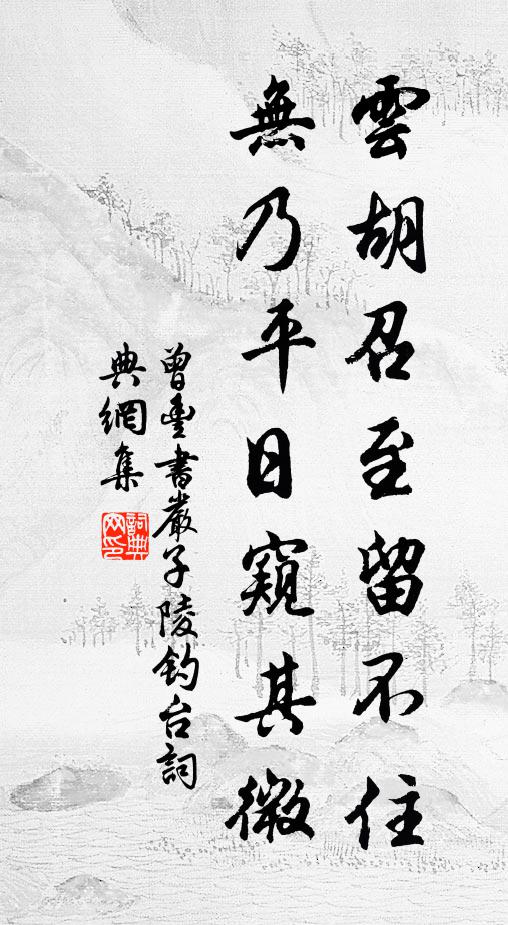 雲胡召至留不住
無乃平日窺其微
曾豐書嚴子陵釣台詞
典網集
詞典網印